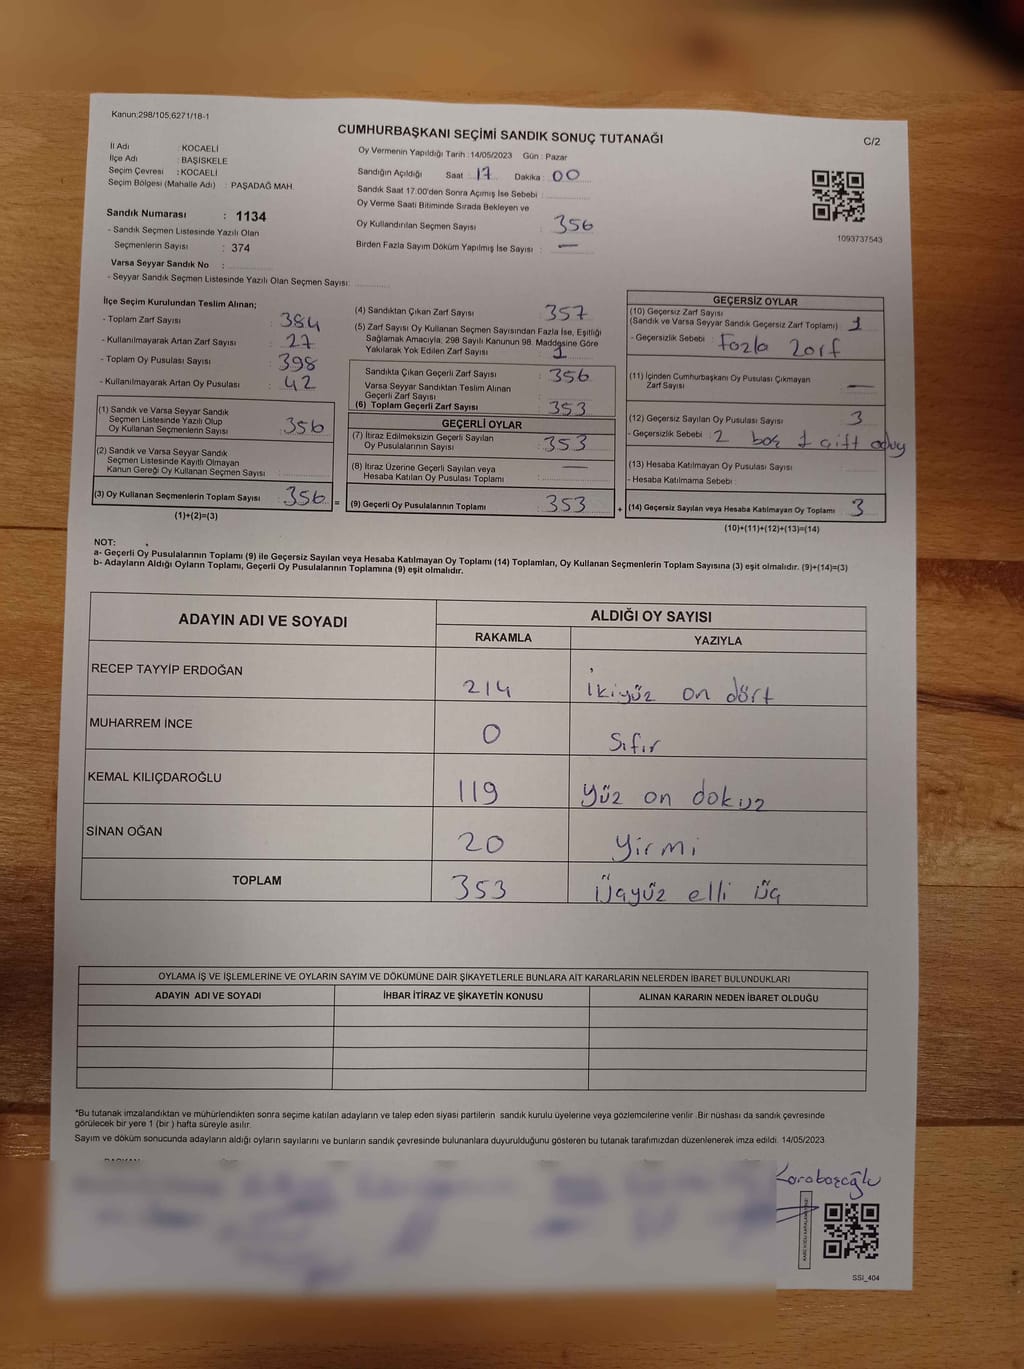 Kanun:298/105,6271/18-1
CUMHURBAŞKANI SEÇİMİ SANDIK SONUÇ TUTANAĞI
C/2
İl Adı : KOCAELİ
İlçe Adı : BAŞİSKELE
Seçim Çevresi : KOCAELİ
Seçim Bölgesi (Mahalle Adı) : PAŞADAĞ MAH.
Sandık Numarası : 1134
- Sandık Seçmen Listesinde Yazılı Olan
Seçmenlerin Sayısı : 374
Varsa Seyyar Sandık No :
- Seyyar Sandık Seçmen Listesinde Yazılı Olan Seçmen Sayısı:
Oy Vermenin Yapıldığı Tarih :14/05/2023 Gün : Pazar
Sandığın Açıldığı Saat : 17 Dakika : 00
Sandık Saat 17:00'den Sonra Açımış İse Sebebi :
Oy Verme Saati Bitiminde Sırada Bekleyen ve
Oy Kullandırılan Seçmen Sayısı : 356
Birden Fazla Sayım Döküm Yapılmış İse Sayısı : —
1093737543
İlçe Seçim Kurulundan Teslim Alınan;
- Toplam Zarf Sayısı : 384
- Kullanılmayarak Artan Zarf Sayısı : 27
- Toplam Oy Pusulası Sayısı : 398
- Kullanılmayarak Artan Oy Pusulası : 42
(1) Sandık ve Varsa Seyyar Sandık
Seçmen Listesinde Yazılı Olup
Oy Kullanan Seçmenlerin Sayısı : 356
(2) Sandık ve Varsa Seyyar Sandık
Seçmen Listesinde Kayıtlı Olmayan
Kanun Gereği Oy Kullanan Seçmen Sayısı :
(3) Oy Kullanan Seçmenlerin Toplam Sayısı : 356 =
(1)+(2)=(3)
(4) Sandıktan Çıkan Zarf Sayısı : 357
(5) Zarf Sayısı Oy Kullanan Seçmen Sayısından Fazla İse, Eşitliği
Sağlamak Amacıyla; 298 Sayılı Kanunun 98. Maddesine Göre
Yakılarak Yok Edilen Zarf Sayısı : 1
Sandıkta Çıkan Geçerli Zarf Sayısı : 356
Varsa Seyyar Sandıktan Teslim Alınan
Geçerli Zarf Sayısı :
(6) Toplam Geçerli Zarf Sayısı : 353
GEÇERLİ OYLAR
(7) İtiraz Edilmeksizin Geçerli Sayılan
Oy Pusulalarının Sayısı : 353
(8) İtiraz Üzerine Geçerli Sayılan veya
Hesaba Katılan Oy Pusulası Toplamı : —
(9) Geçerli Oy Pusulalarının Toplamı : 353 +
GEÇERSİZ OYLAR
(10) Geçersiz Zarf Sayısı
(Sandık ve Varsa Seyyar Sandık Geçersiz Zarf Toplamı) : 1
- Geçersizlik Sebebi : Fazla Zarf
(11) İçinden Cumhurbaşkanı Oy Pusulası Çıkmayan
Zarf Sayısı : —
(12) Geçersiz Sayılan Oy Pusulası Sayısı : 3
- Geçersizlik Sebebi : 2 boş 1 çift
(13) Hesaba Katılmayan Oy Pusulası Sayısı :
- Hesaba Katılmama Sebebi :
(14) Geçersiz Sayılan veya Hesaba Katılmayan Oy Toplamı : 3
(10)+(11)+(12)+(13)=(14)
NOT:
a- Geçerli Oy Pusulalarının Toplamı (9) ile Geçersiz Sayılan veya Hesaba Katılmayan Oy Toplamı (14) Toplamları, Oy Kullanan Seçmenlerin Toplam Sayısına (3) eşit olmalıdır. (9)+(14)=(3)
b- Adayların Aldığı Oyların Toplamı, Geçerli Oy Pusulalarının Toplamına (9) eşit olmalıdır.
ADAYIN ADI VE SOYADI
ALDIĞI OY SAYISI
RAKAMLA YAZIYLA
RECEP TAYYİP ERDOĞAN 214 İkiyüz on dört
MUHARREM İNCE 0 Sıfır
KEMAL KILIÇDAROĞLU 119 Yüz on dokuz
SİNAN OĞAN 20 Yirmi
TOPLAM 353 Üçyüz elli üç
OYLAMA İŞ VE İŞLEMLERİNE VE OYLARIN SAYIM VE DÖKÜMÜNE DAİR ŞİKAYETLERLE BUNLARA AİT KARARLARIN NELERDEN İBARET BULUNDUKLARI
ADAYIN ADI VE SOYADI İHBAR İTİRAZ VE ŞİKAYETİN KONUSU ALINAN KARARIN NEDEN İBARET OLDUĞU
*Bu tutanak imzalandıktan ve mühürlendikten sonra seçime katılan adayların ve talep eden siyasi partilerin sandık kurulu üyelerine veya gözlemcilerine verilir .Bir nüshası da sandık çevresinde
görülecek bir yere 1 (bir ) hafta süreyle asılır.
Sayım ve döküm sonucunda adayların aldığı oyların sayılarını ve bunların sandık çevresinde bulunanlara duyurulduğunu gösteren bu tutanak tarafımızdan düzenlenerek imza edildi. 14/05/2023
SSI_404